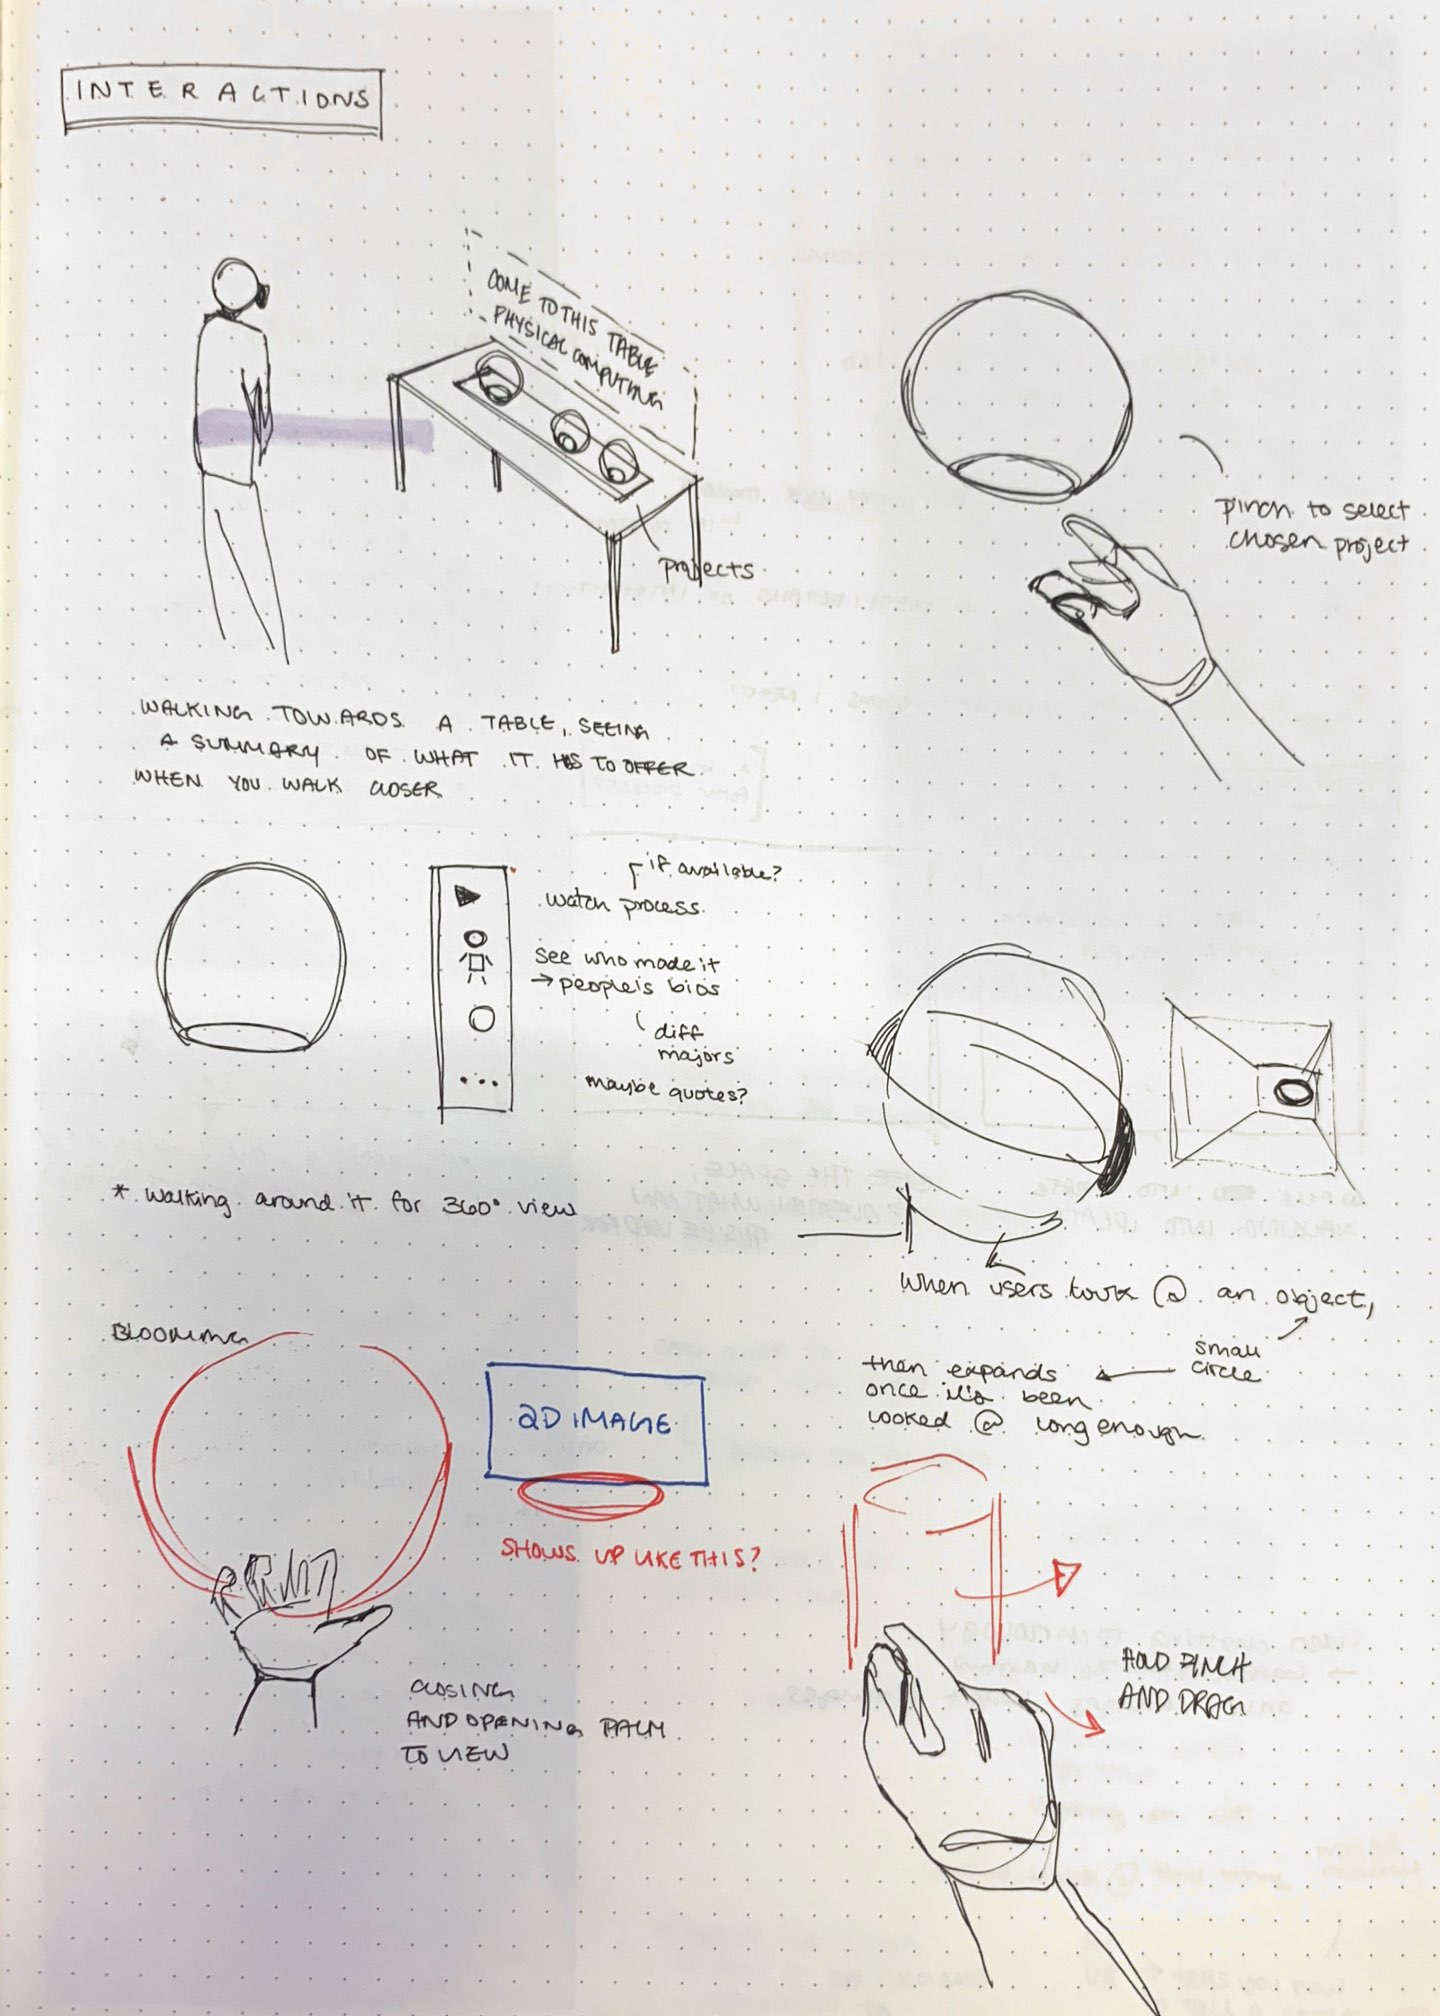 INTERACTIONS
COME TO THIS TABLE
PHYSICAL COMPUTING
projects
pinch to select
chosen project
WALKING TOWARDS A TABLE, SEEING
A SUMMARY OF WHAT IT HAS TO OFFER
WHEN YOU WALK CLOSER
if available?
watch process
see who made it
→ people's bios
diff
majors
maybe quotes?
* walking around it for 360° view
when users look @ an object,
small
circle
then expands
once it's been
looked @ long enough
BLOOMING
2D IMAGE
SHOWS UP LIKE THIS?
CLOSING
AND OPENING PALM
TO VIEW
HOLD PINCH
AND DRAG